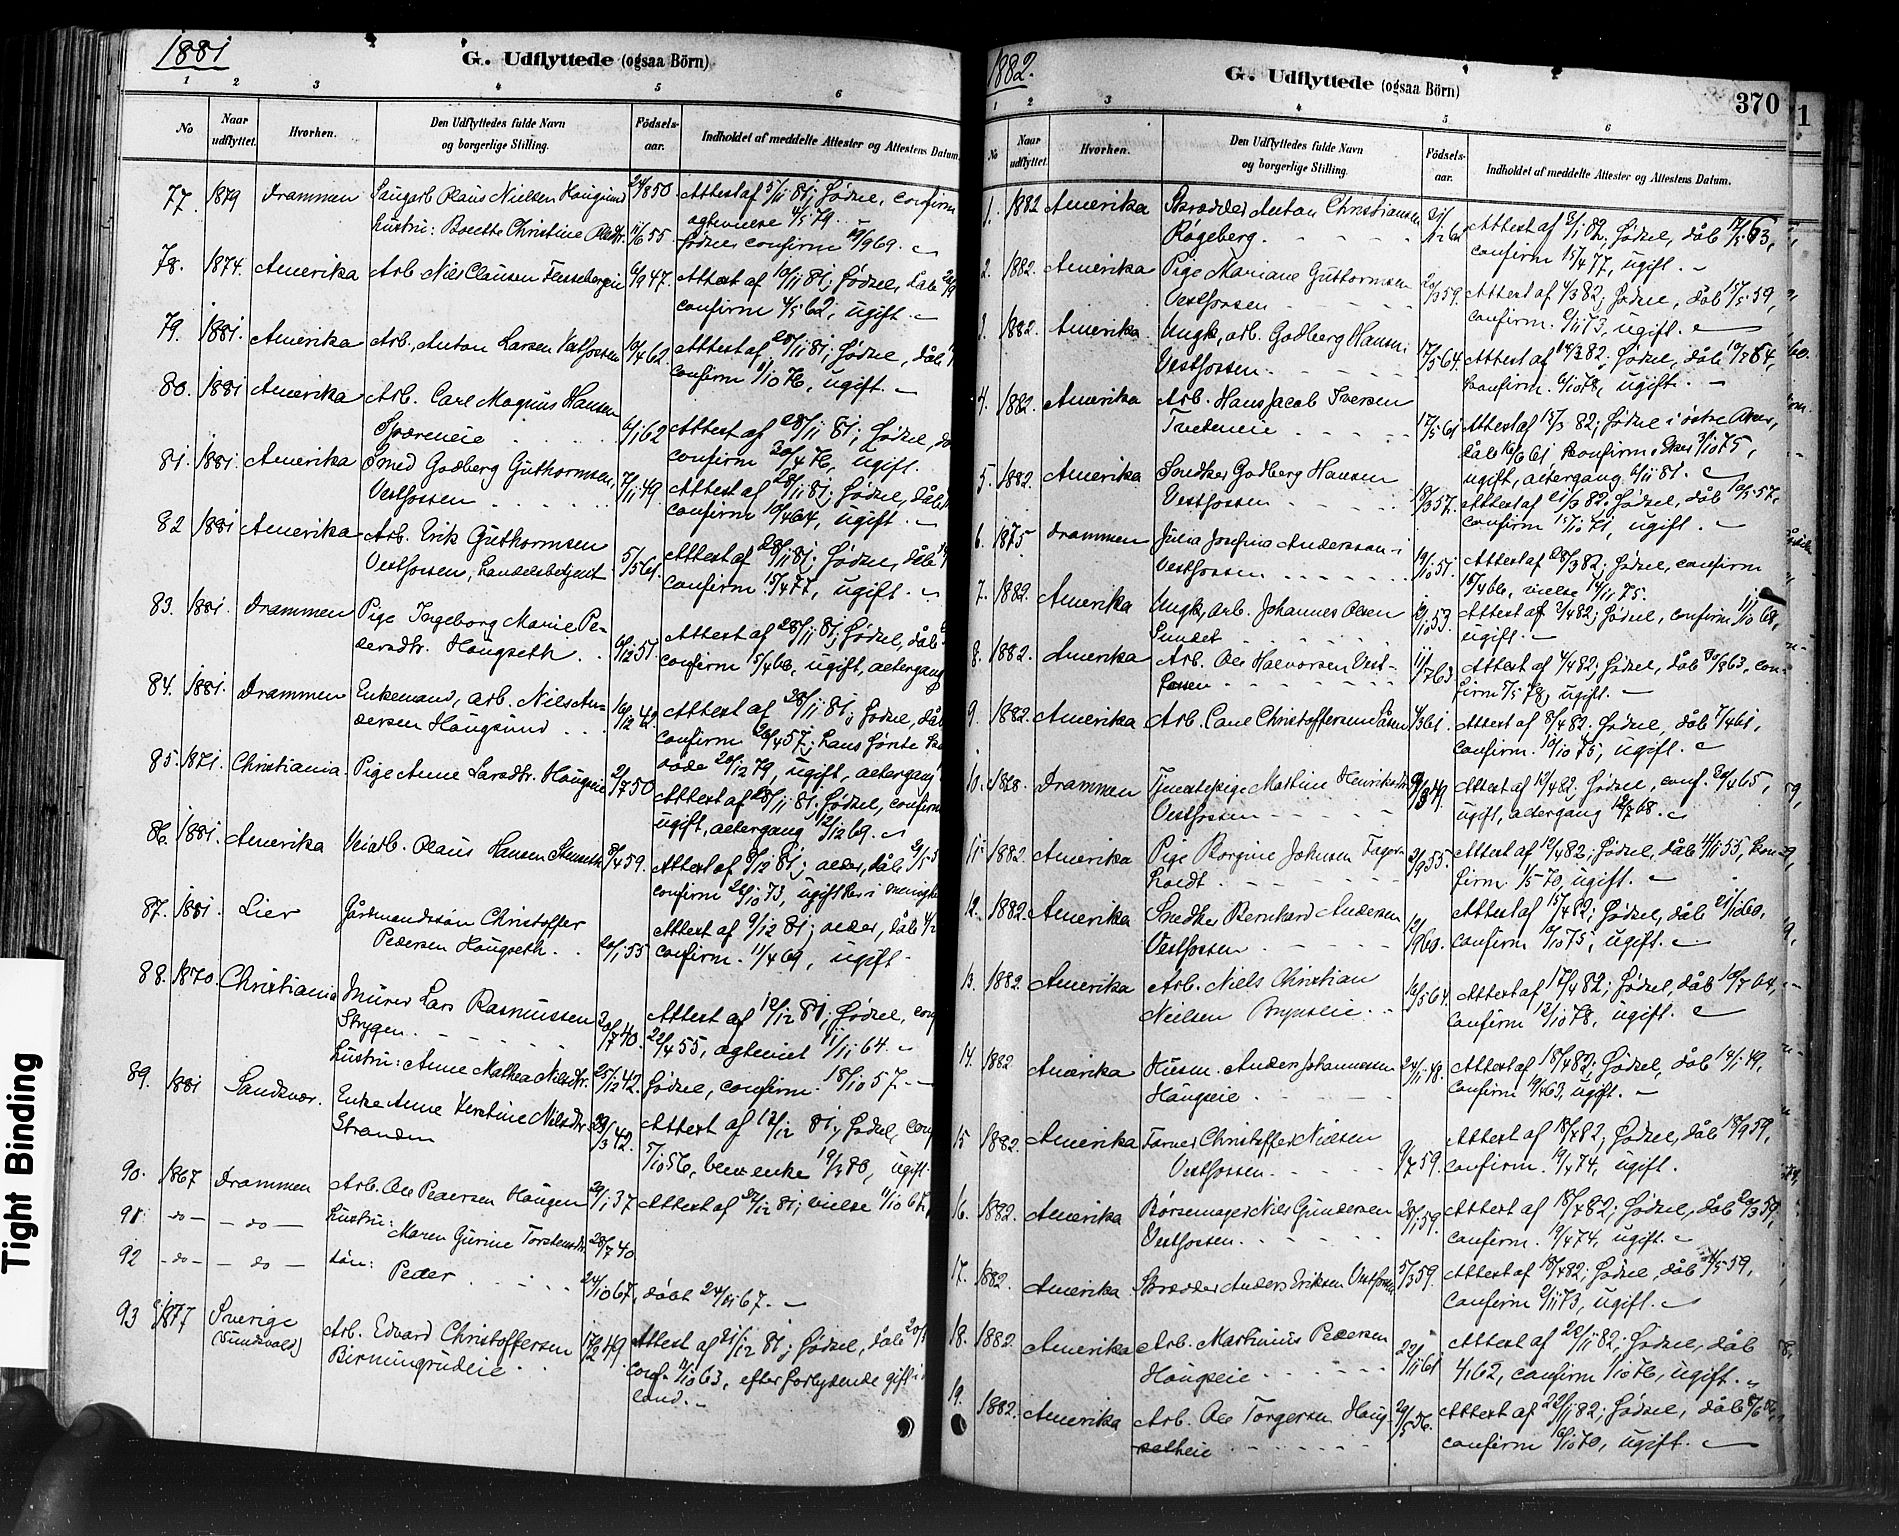 1881
G. Udflyttede (ogsaa Börn)
1 2 3 4 5 6
No
Naar udflyttet.
Hvorhen.
Den Udflyttedes fulde Navn og borgerlige Stilling.
Födsels-aar.
Indholdet af meddelte Attester og Attestens Datum.
77. 1879 Drammen Saugarb. Claus Nielsen Haugsund 50 Attest af 5/11 81; Födsel, confirm
ægtevielse 4/5 79.
hustru: Boette Christine 55 Födsel confirm 69.
78. 1874. Amerika Arb. Niels Clausen 47. Attest af 10/11 81; Födsel, dåb
confirm 4/5 62, ugift.
79. 1881. Amerika Arb. Anton Larsen Vestfossen 62 Attest af 28/11 81; Födsel, dåb
confirm 1/10 76, ugift.
80. 1881 Amerika Arb. Carl Magnus Hansen
62 Attest af 28/11 81; Födsel,
confirm 20/4 76, ugift.
81. 1881. Amerika Smed Godberg Guthormsen,
Vestfossen 7/11 49 Attest af 28/11 81; Födsel, dåb
confirm 10/4 64, ugift.
82 1881 Amerika Arb. Erik Guthormsen
Vestfossen, Handelsbetjent 5/5 61. Attest af 28/11 81; Födsel, dåb
confirm 15/4 77, ugift.
83. 1881. Drammen Pige Ingeborg Marie Pe-
dersdtr. Hougseth 6/12 51. Attest af 28/11 81; Födsel, dåb
confirm 15/4 66, ugift, altergang
84. 1881. Drammen Enkemand, arb. Nils An-
dersen Hougsund 42. Attest af 28/11 81; Födsel, dåb
confirm 26/4 57; hans förste
döde 20/12 79, ugift, altergang
85. 1871. Christiania. Pige Anne Larsdtr. Hougseie 2/7 50 Attest af 28/11 81. Födsel, confirm
ugift, altergang 12/12 69.
86. 1881. Amerika Veiarb. Claus Hansen Stenseth 8/4 59. Attest af 8/12 81; alder, dåb
confirm 26/10 73, ugift her i menigh
87. 1881. Lier Gårdmandssön Christoffer
Pedersen Hougseth. 20/1 55 Attest af 9/12 81; alder, dåb
confirm. 11/4 69, ugift
88. 1870. Christiania Murer Lars Rasmussen
Strygen. 20/7 40. Attest af 10/12 81; Födsel, conf
22/4 55, ægteviet 1/11 64.
hustru: Anne Mathea Nilsdtr. 25/12 42. Födsel, confirm. 18/10 57.
89. 1881 Sandsvær. Enke Anne Kerstine Nilsdtr.
Stranden 42. Attest af 12/12 81; Födsel, conf
5/10 56, blev enke 19/3 80, ugift.
90. 1867 Drammen Arb. Ole Pedersen Haugen 29/1 37 Attest af 27/12 81; vielse 11/10 67,
91. - do - - do - hustru: Maren Gurine Torstensdtr. 28/7 40
92 - do - - do - sön: Peder 24/10 67, döbt 24/11 67.
93 1877 Sverige
(Sundsvald) Arb. Edvard Christoffersen
Birmingrudeie 17/2 49 Attest af 21/12 81; Födsel, dåb 20/
conf. 63, efter forlydende gift i
land.
1882.
G. Udflyttede (ogsaa Börn)
370
1
1 2 3 4 5 6
No
Naar udflyttet.
Hvorhen.
Den Udflyttedes fulde Navn og borgerlige Stilling.
Födsels-aar.
Indholdet af meddelte Attester og Attestens Datum.
1. 1882 Amerika Skrædder Anton Christiansen
Rögeberg. Attest af 82; Födsel, dåb 17/5 63,
confirm 15/4 77, ugift.
2. 1882. Amerika Pige Mariane Guthormsen
Vestfossen 20/3 59. Attest af 4/3 82; Födsel, dåb 15/5 59,
confirm. 9/11 73, ugift.
3. 1882. Amerika Ungk. arb. Godberg Hansen
Vestfossen. 17/5 64. Attest af 14/3 82; Födsel, dåb 64,
confirm. 6/10 78, ugift.
4. 1882. Amerika Arb. Hans Jacob Iversen
Tvedeneie 17/5 61 Attest af 15/3 82; Födsel i östre
dåb 16/6 61 Konfirm. 31/10 75,
ugift, altergang 6/11 81.
5. 1882. Amerika Snedker Godberg Hansen
Vestfossen 18/3 57. Attest af 21/3 82; Födsel, dåb 10/5 57,
confirm 15/10 71, ugift.
6. 1875 Drammen Julia Josefina Anderssen
Vestfossen 19/10 51. Attest af 28/3 82; Födsel, confirm
15/4 66, vielse 14/11 75.
7. 1882. Amerika Ungk, arb. Johannes Olsen
Sundet 53. Attest af 3/4 82; Födsel, confirm 11/10 68,
ugift.
8. 1882. Amerika Arb. Ole Halvorsen Vest-
fossen 11/7 63 Attest af 4/4 82; Födsel, dåb 30/8 63, con-
firm 78, ugift.
9. 1882. Amerika Arb. Carl Christoffersen 4/3 61. Attest af 8/4 82. Födsel, dåb 7/4 61,
confirm. 10/10 75, ugift.
10. 1878. Drammen Tjenestepige Mathine Henriksdtr.
Vestfossen 49. Attest af 12/4 82. Födsel, conf. 20/4 65,
ugift, altergang 12/7 68.
11. 1882. Amerika Pige Borgine Johnsen Fager-
holdt. 2/9 55 Attest af 12/4 82; Födsel, dåb 4/11 55, kon-
firm. 1/5 70, ugift.
12. 1882. Amerika Snedker Bernhard Andersen
Vestfossen 60. Attest af 15/4 82; Födsel, dåb 21/1 60,
confirm 10/10 75, ugift.
13. 1882. Amerika Arb. Niels Christian
Nielsen Brynseie. 16/5 64. Attest af 17/4 82; Födsel, dåb 10/7 64,
confirm 13/10 78, ugift.
14. 1882 Amerika Husm. Anders Johannessen
Hougseie 24/11 48. Attest af 18/4 82; Födsel, dåb 14/1 49,
confirm 19/4 63, ugift.
15 1882. Amerika Farver Christoffer Nielsen
Vestfossen. 9/7 59. Attest af 18/4 82; Födsel, dåb 18/9 59,
confirm. 19/4 74, ugift.
16. 1882. Amerika Börsemager Niels Gundersen
Vestfossen. 28/1 59. Attest af 18/4 82; Födsel, dåb 20/3 59,
confirm. 19/4 74, ugift.
17. 1882. Amerika Skrædder Anders Eriksen Vestfossen 5/3 59. Attest af 18/4 82; Födsel, dåb 59,
confirm 2/11 73, ugift.
18. 1882. Amerika Arb. Martinius Pedersen
Hougseie 22/11 61 Attest af 20/11 82; Födsel, dåb
4/1 62, confirm 1/10 76, ugift.
19. 1882. Amerika Arb. Ole Torgersen Houg-
setheie 29/5 56. Attest af 22/11 82; Födsel, dåb 8/6 56,
confirm 16/10 70, ugift.
Tight Binding